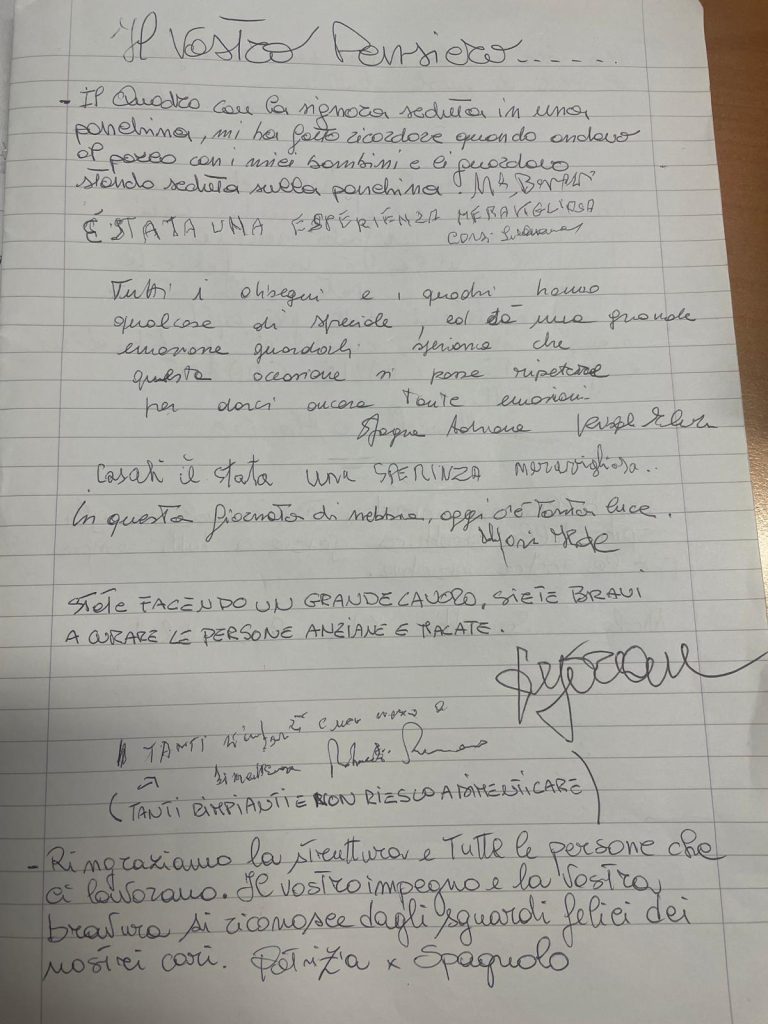 Il Vostro Pensiero......
- Il Quadro con la signora seduta in una
panchina, mi ha fatto ricordare quando andavo
al parco con i miei bambini e li guardavo
stando seduta sulla panchina.
È STATA UNA ESPERIENZA MERAVIGLIOSA
Tutti i disegni e i quadri hanno
qualcose di speciale, ed dà una grande
emozione guardarli speriamo che
questa occasione si possa ripetere
per darci ancora tante emozioni.
Adriana
Casati è stata una SPERINZA meravigliosa..
In questa giornata di nebbia, oggi c'è tanta luce.
STETE FACENDO UN GRANDE LAVORO, SIETE BRAVI
A CURARE LE PERSONE ANZIANE E MALATE.
TANTI
(TANTI RIMPIANTI E NON RIESCO A DIMENTICARE)
- Ringraziamo la struttura e Tutte le persone che
ci lavorano. Il vostro impegno e la Vostra
bravura si riconosce dagli sguardi felici dei
nostri cari. Patrizia x Spagnolo